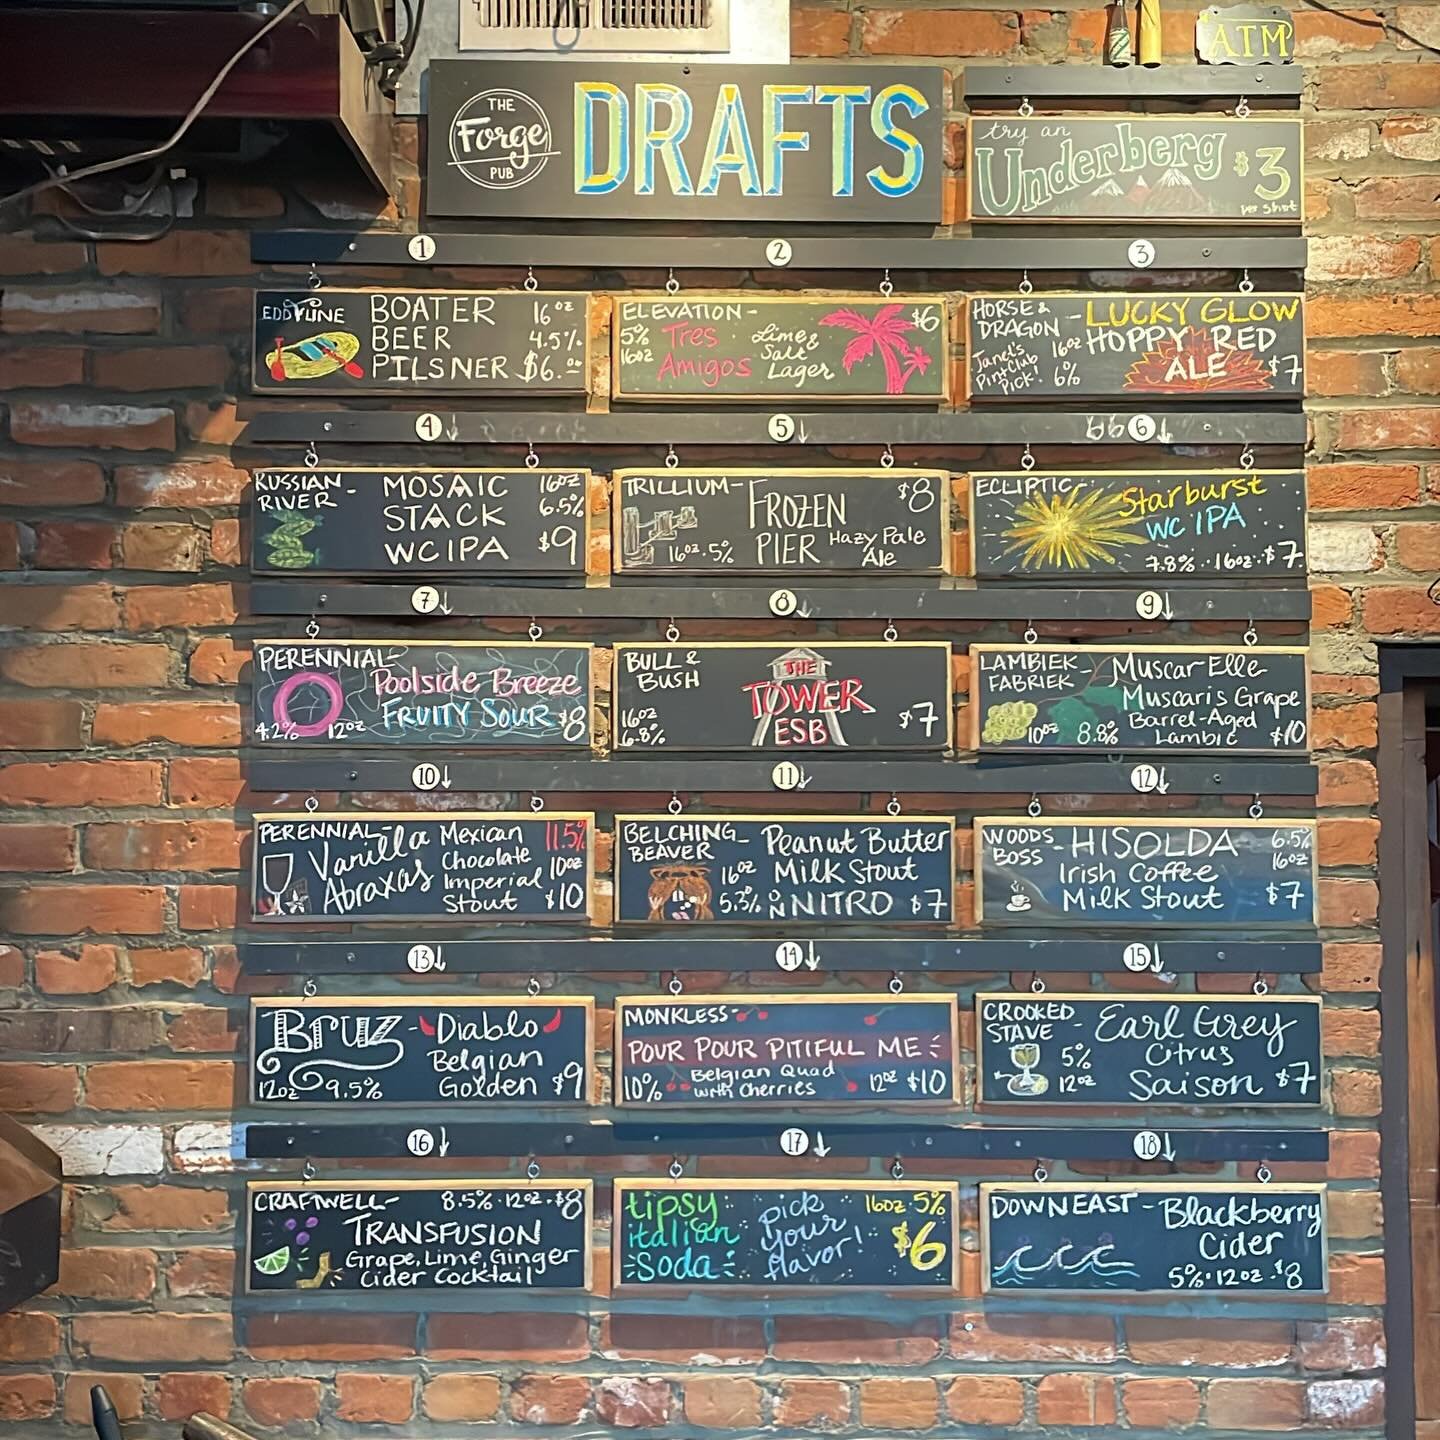 ATM
THE
Forge
PUB
DRAFTS
try an
Underberg
$3
per shot
1
2
3
EDDYLINE
BOATER
BEER
PILSNER
16oz
4.5%
$6.00
ELEVATION-
5%
16oz
Tres
Amigos
Lime &
Salt
Lager
$6
HORSE &
DRAGON -
Janel's
Pint Club
Pick!
16oz
6%
LUCKY GLOW
HOPPY RED
ALE
$7
4
5
6
RUSSIAN -
RIVER
MOSAIC
STACK
WC IPA
16oz
6.5%
$9
TRILLIUM-
FROZEN
PIER
Hazy Pale
Ale
16oz · 5%
$8
ECLIPTIC-
Starburst
WC IPA
7.8% · 16oz · $7
7
8
9
PERENNIAL-
Poolside Breeze
FRUITY SOUR
4.2%
12oz
$8
BULL &
BUSH
16oz
6.8%
THE
TOWER
ESB
$7
LAMBIEK -
FABRIEK
Muscar Elle
Muscaris Grape
Barrel-Aged
Lambic
10oz
8.8%
$10
10
11
12
PERENNIAL-
Vanilla
Abraxas
Mexican
Chocolate
Imperial
Stout
11.5%
10oz
$10
BELCHING -
BEAVER
16oz
5.3%
Peanut Butter
Milk Stout
ON NITRO
$7
WOODS -
BOSS
HISOLDA
Irish Coffee
Milk Stout
6.5%
16oz
$7
13
14
15
BRUZ -
Diablo
Belgian
Golden
12oz
9.5%
$9
MONKLESS-
POUR POUR PITIFUL ME
Belgian Quad
with Cherries
10%
12oz
$10
CROOKED
STAVE -
Earl Grey
Citrus
Saison
5%
12oz
$7
16
17
18
CRAFTWELL-
8.5% · 12oz · $8
TRANSFUSION
Grape, Lime, Ginger
Cider Cocktail
tipsy
italian
Soda
pick
your
flavor!
16oz 5%
$6
DOWNEAST -
Blackberry
Cider
5% · 12oz · $8